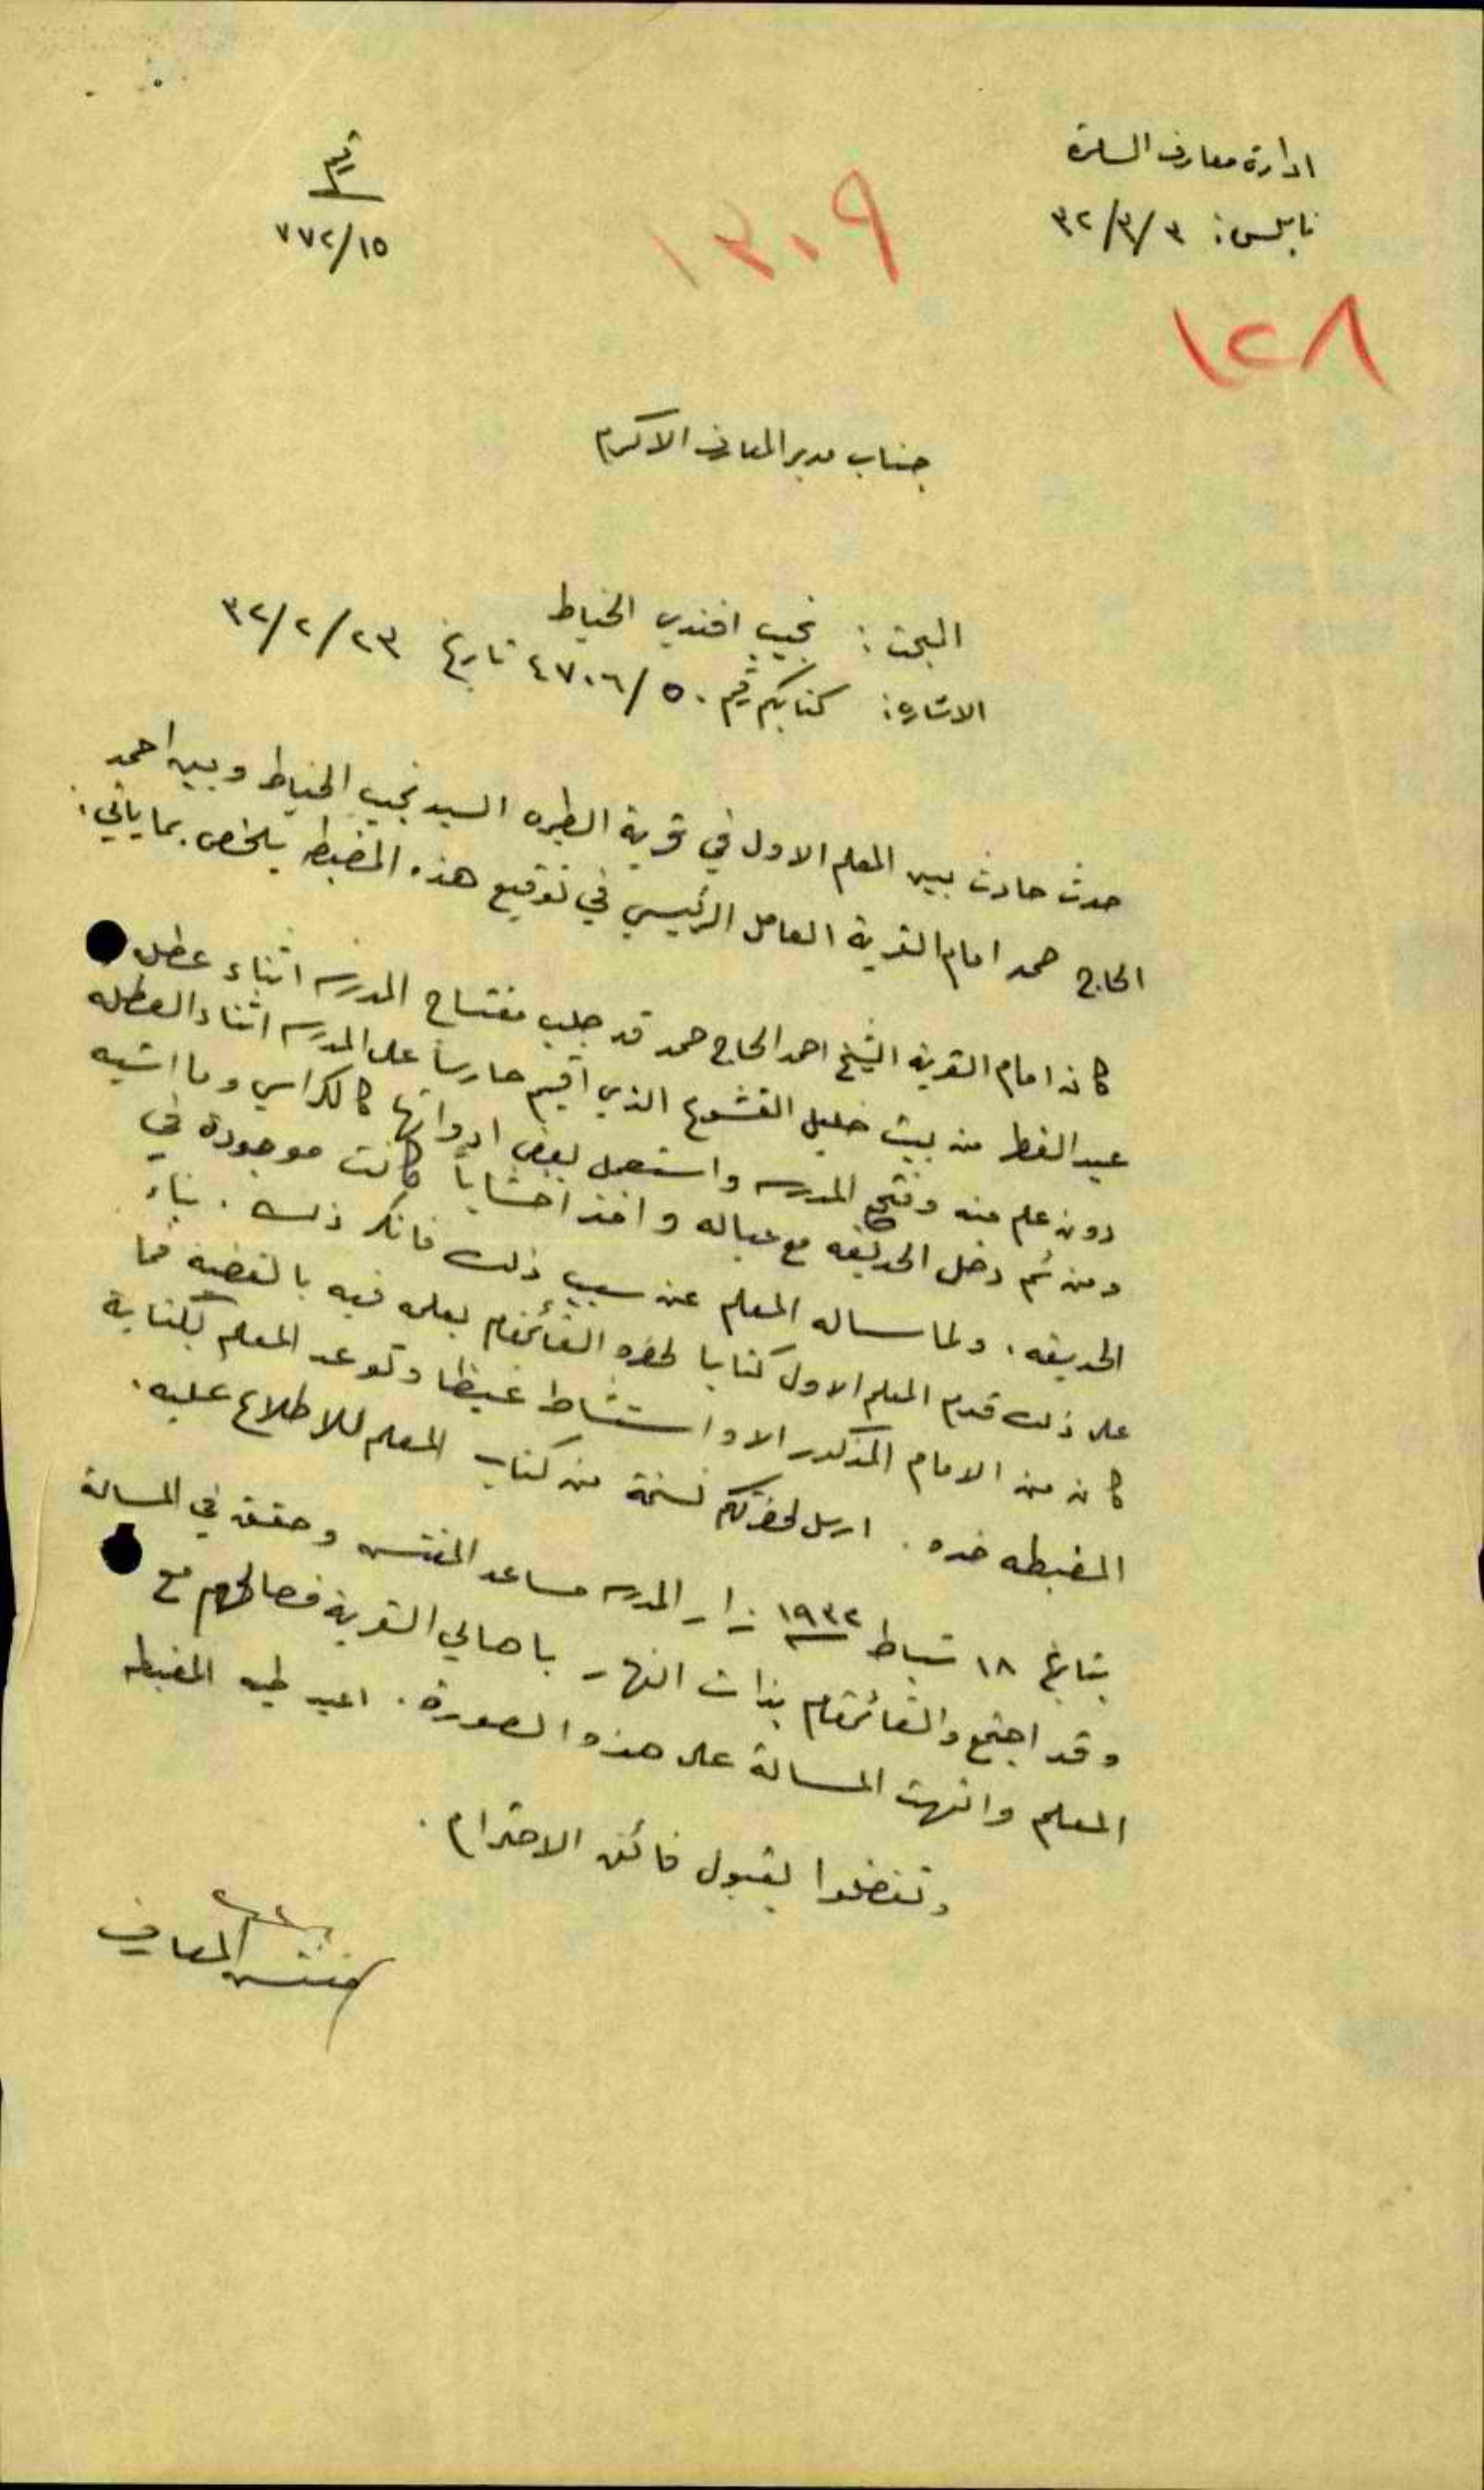 ادارة معارف السامرة
نابلس: ٣/٣/٣٢
رقم
٧٧٢/١٥
١٣٠٩
١٢٨
جناب مدير المعارف الاكرم
البحث: نجيب افندي الخياط
الاشارة: كتابكم رقم ٤٧٠٦/٥٠ تاريخ ٣٢/٢/٢٣
حدث حادث بين المعلم الاول في قرية الطيره السيد نجيب الخياط وبين احمد
الحاج حمد امام القرية العامل الرئيسي في توقيع هذه المضبطه يلخص بما يأتي:
كان امام القرية الشيخ احمد الحاج حمد قد جلب مفتاح المدرسه اثناء عطلة
عيد الفطر من بيت خليل القشوع الذي اقيم حارساً على المدرسه اثناء العطله
دون علم منه وفتح المدرسه واستعمل بعض ادواتها كالكراسي وما اشبه
ومن ثم دخل الحديقه مع عياله واخذ اخشاباً كانت موجودة في
الحديقه. ولما ساله المعلم عن سبب ذلك فانكر ذلك. بناء
على ذلك قدم المعلم الاول كتابا لحضرة القائمقام يعلمه فيه بالقضيه فما
كان من الامام المذكور الا واستشاط غيظا وتوعد المعلم بكتابة
المضبطه ضده. ارسل لحضرتكم نسخة من كتاب المعلم للاطلاع عليه.
بتاريخ ١٨ شباط ١٩٣٢ زار المدرسه مساعد المفتش وحقق في المسالة
وقد اجتمع والقائمقام بذات النهار باهالي القرية فصالحهم مع
المعلم وانتهت المسالة على هذه الصورة. اعيد طيه المضبطه
وتفضلوا بقبول فائق الاحترام.
مفتش المعارف